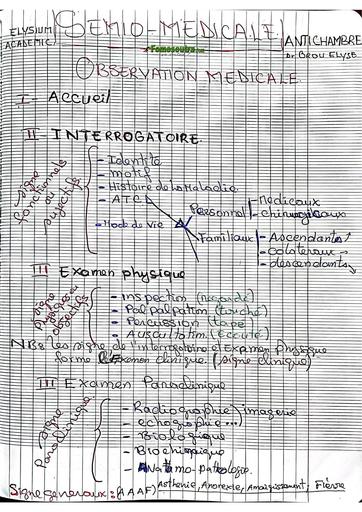 ELYSIUM ACADEMIC
SEMIO-MEDICALE
ANTICHAMBRE
Dr BROU ELYSE
Fomesoutra.com
OBSERVATION MEDICALE
I- Accueil
II- INTERROGATOIRE
signe fonctionnels ou subjectifs
- Identité
- motif
- Histoire de la Maladie
- ATCD
Personnel
- medicaux
- chirurgicaux
- Mode de Vie
Familiaux
- Ascendants
- colateraux
- descendants
III Examen physique
signe physique ou objectifs
- inspection (regarde)
- Palpation (touche)
- Percussion (tape)
- Auscultation (Ecoute)
NB: les signe de l'interrogatoire et Examen Physique
forme l'Examen clinique. (signe clinique)
III Examen Paraclinique
signe Paraclinique
- Radiographie) imagerie
- echographie...)
- Biologique
- Biochimique
- Anatomo-pathologie.
Signe Generaux: (AAAF) Asthenie, Anorexie, Amaigrissement, Fièvre